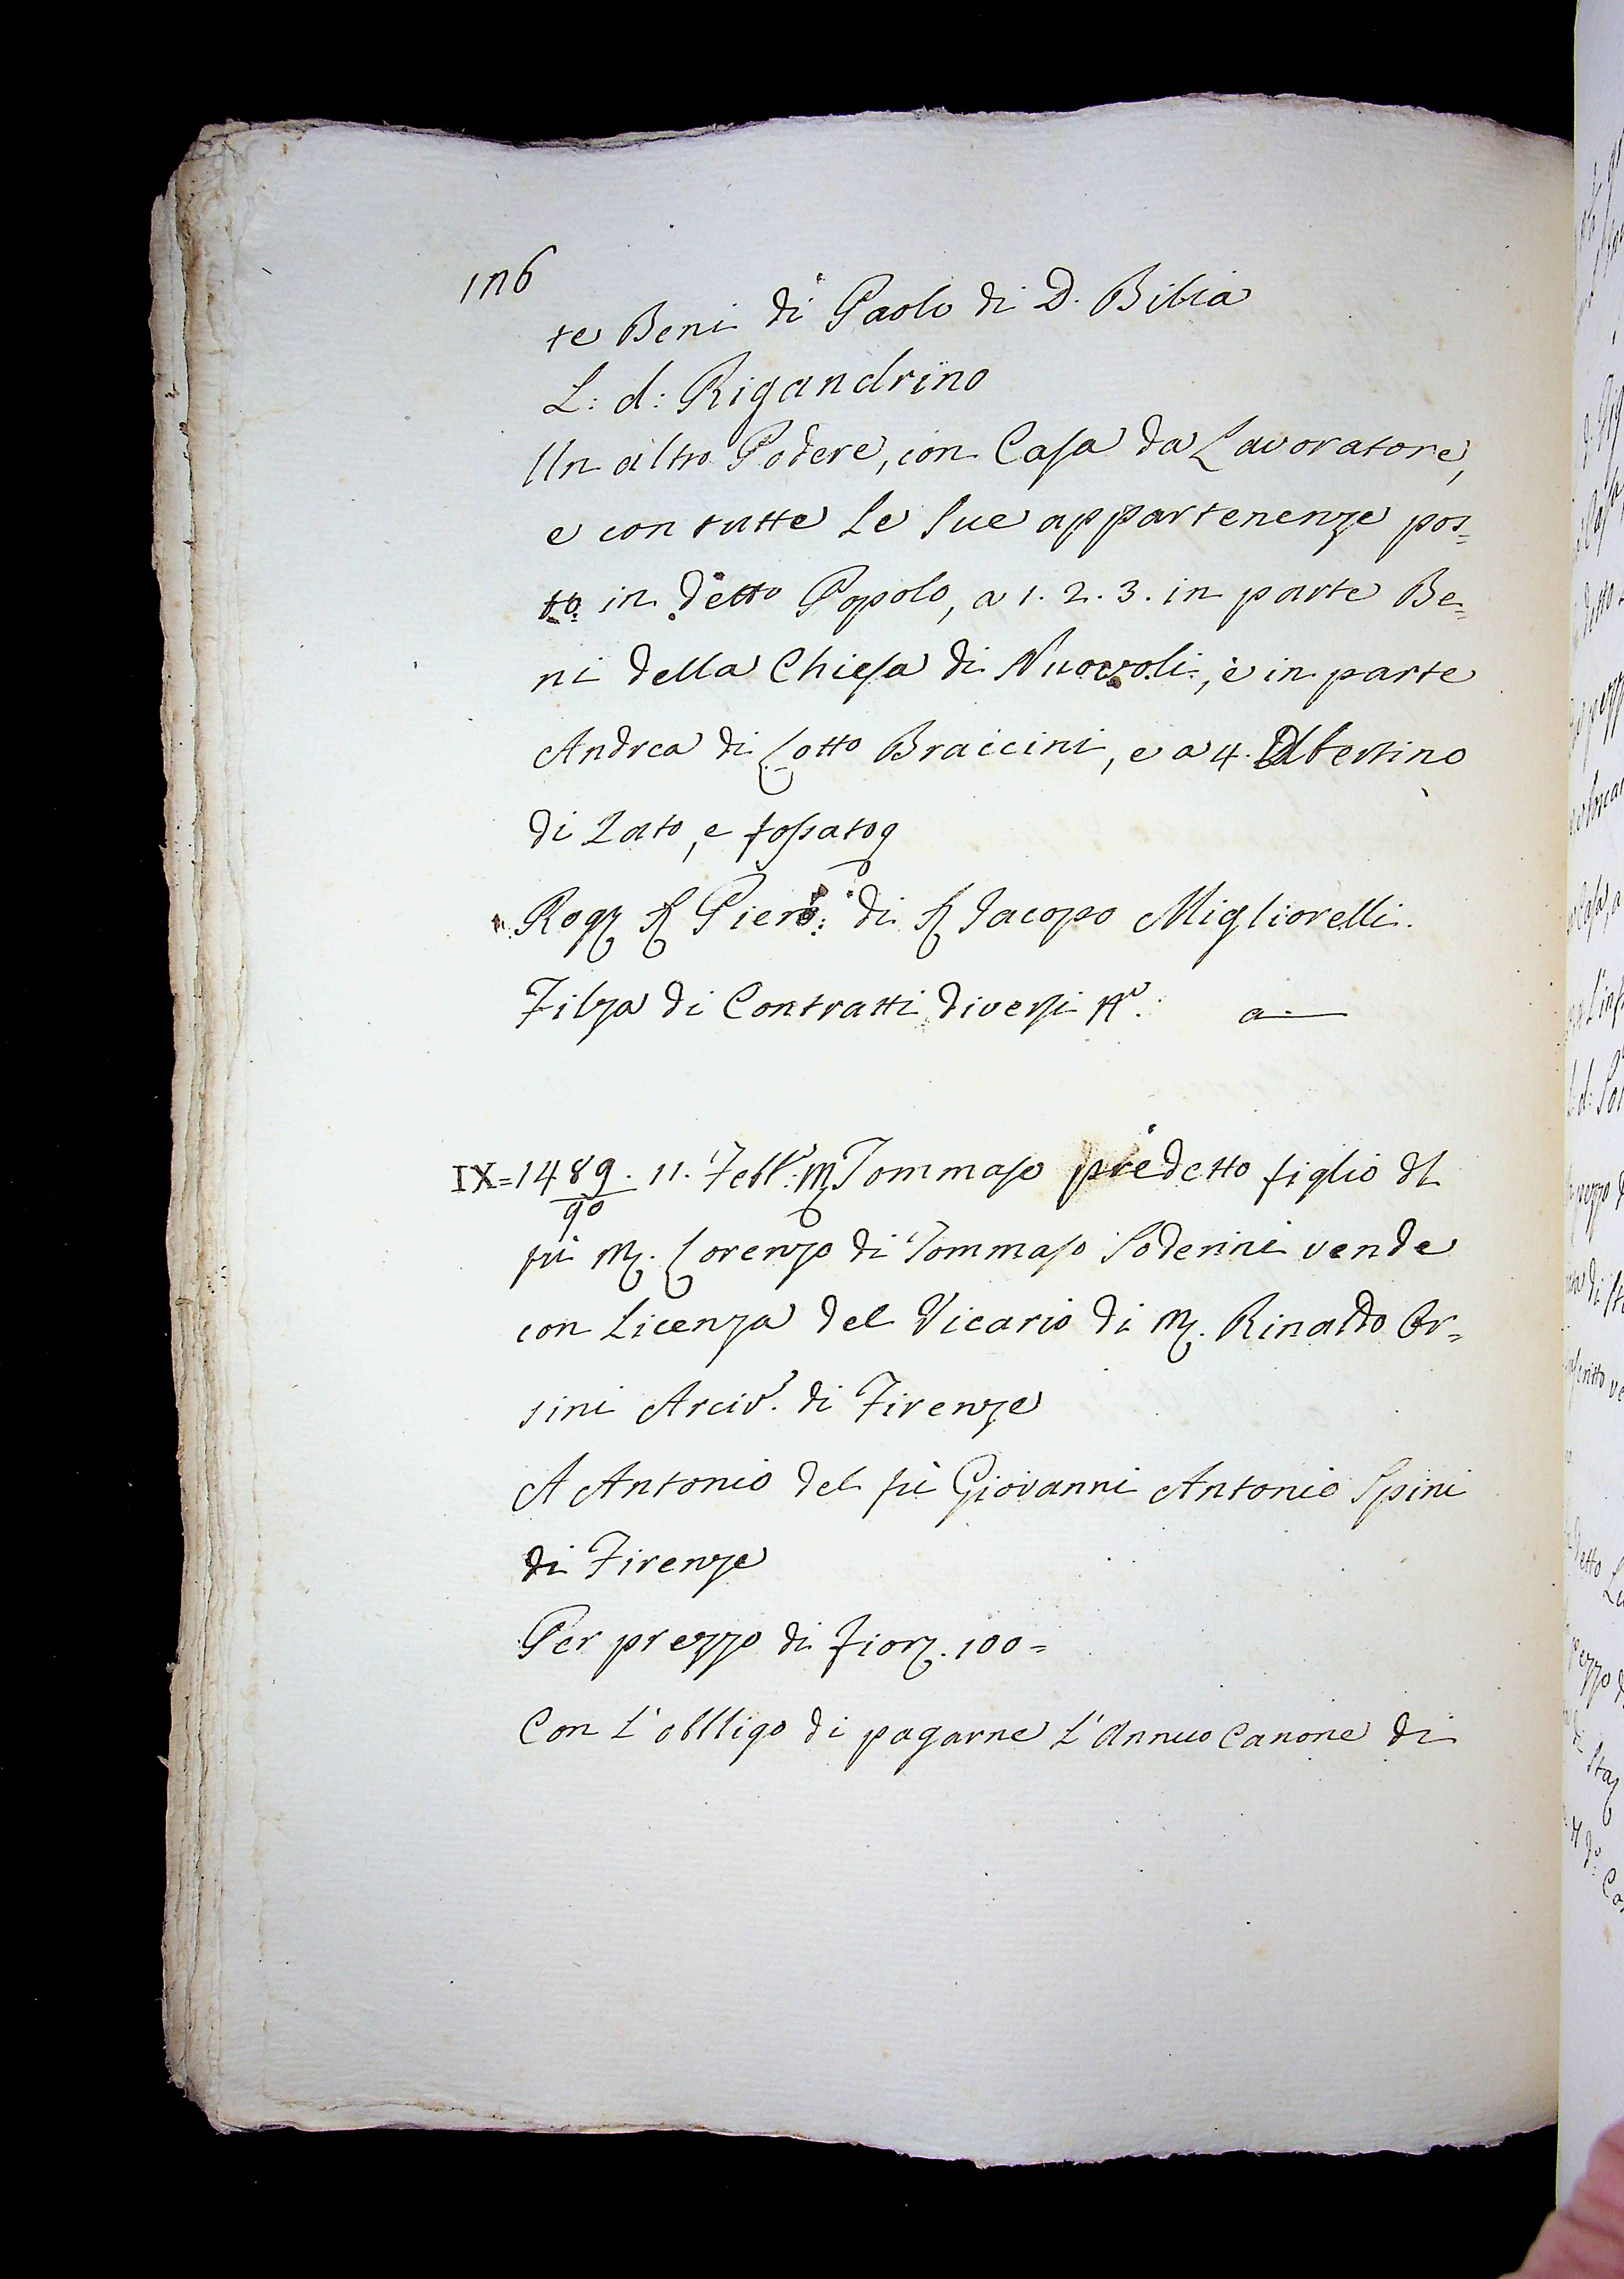 176
te Beni di Paolo di D. Bilia
L: d: Rigandrino
Un altro Podere, con Casa da Lavoratore,
e con tutte le sue appartenenze pos=
to in detto Popolo, a 1. 2. 3. in parte Be=
ni della Chiesa di Nuovoli, e in parte
Andrea di Lotto Braccini, e a 4. Ubertino
di Lato, e fossato
Rog. Piero: di Jacopo Migliorelli.
Filza di Contratti diversi a
IX=1489. 11. Febb.º M. Tommaso predetto figlio dl
90
fù M. Lorenzo di Tommaso Soderini vende
con Licenza del Vicario di M. Rinaldo Or=
sini Arciv.º di Firenze
A Antonio del fù Giovanni Antonio Spini
di Firenze
Per prezzo di fior. 100=
Con l'obbligo di pagarne l'Annuo Canone di